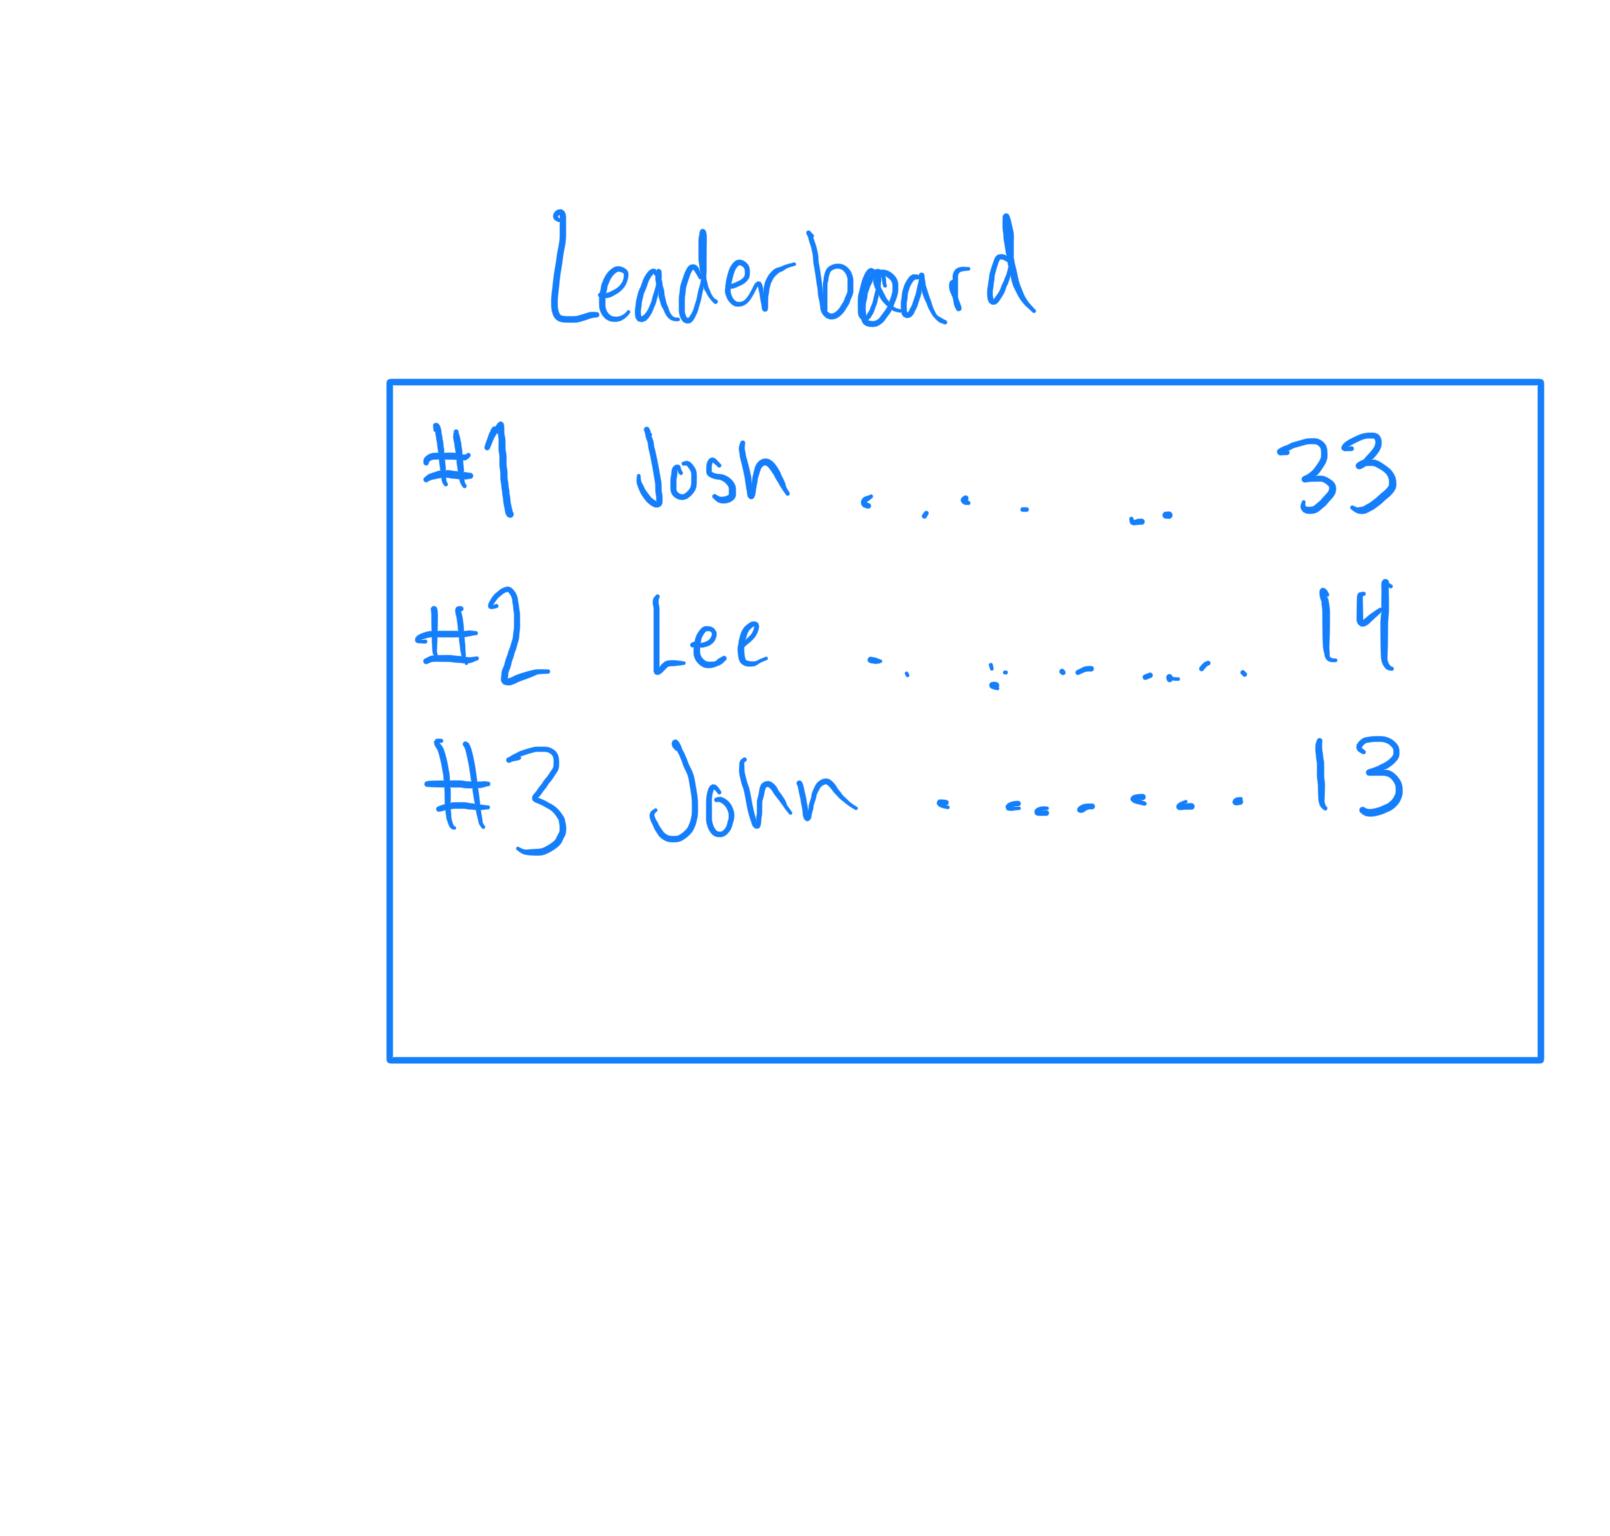 Leaderboard
#1 Josh . . . . . . 33
#2 Lee . . . . . . . . . . 14
#3 John . - - - - - . 13